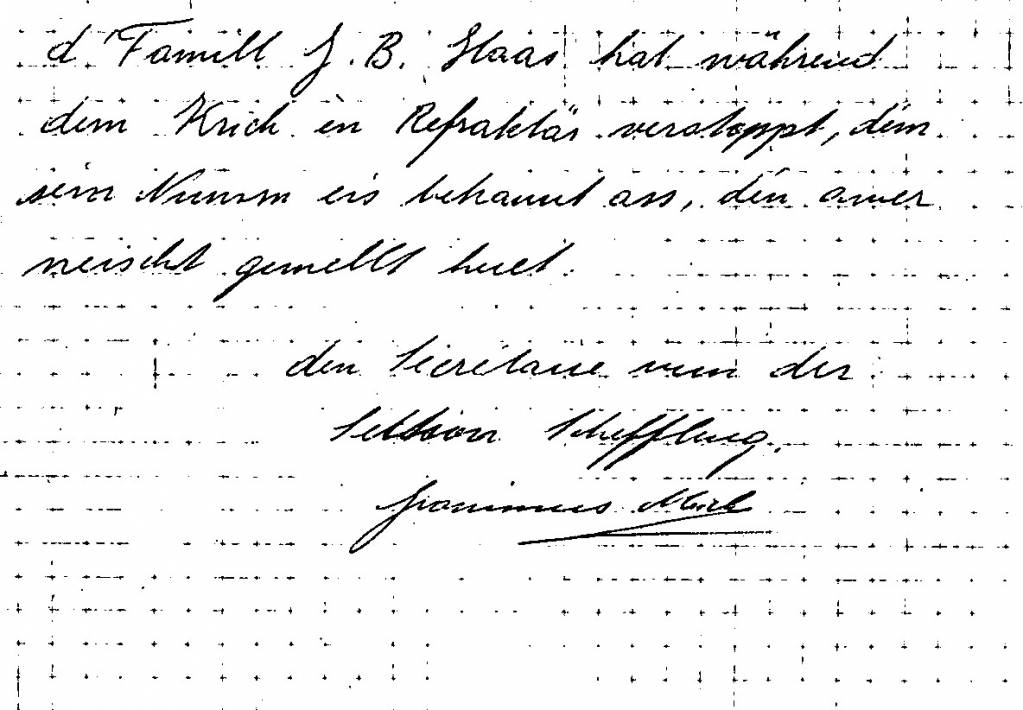 d'Famill J. B. Haas hat während
dem Krich en Refraktär verstoppt, dem
sein Numm eis bekannt ass, den awer
neischt gemellt huet.
den Secrétaire vun der
Section Schiffleng.